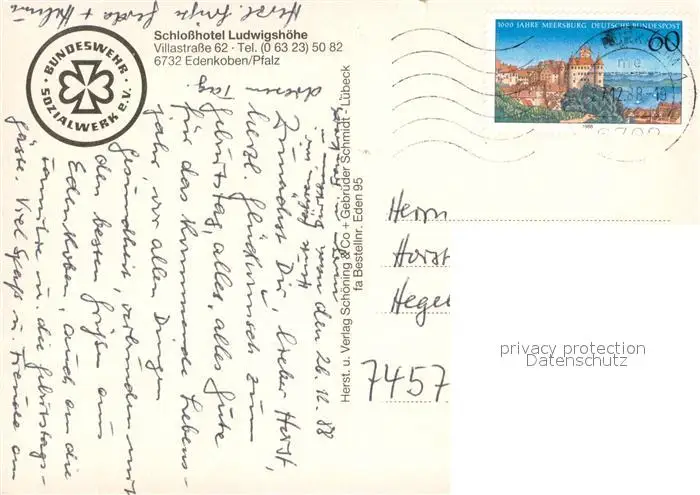 BUNDESWEHR · SOZIALWERK e.V. ·
Schloßhotel Ludwigshöhe
Villastraße 62 · Tel. (0 63 23) 50 82
6732 Edenkoben/Pfalz
1000 JAHRE MEERSBURG DEUTSCHE BUNDESPOST
60
1988
Herst. u. Verlag Schöning & Co + Gebrüder Schmidt · Lübeck
fa Bestellnr. Eden 95
den 26.12.88
Zunächst Dir, lieber Horst,
herzl. Glückwunsch zum
Geburtstag, alles, alles Gute
für das kommende Lebens-
jahr, vor allen Dingen
Gesundheit, verbunden mit
den besten Grüßen aus
Edenkoben, auch an die
Familie u. die Geburtstags-
gäste. Viel Spaß u. Freude an
diesem Tag.
Herzl. Grüße Gerda + Helmut
Herrn
Horst
Hegel
7457
privacy protection
Datenschutz